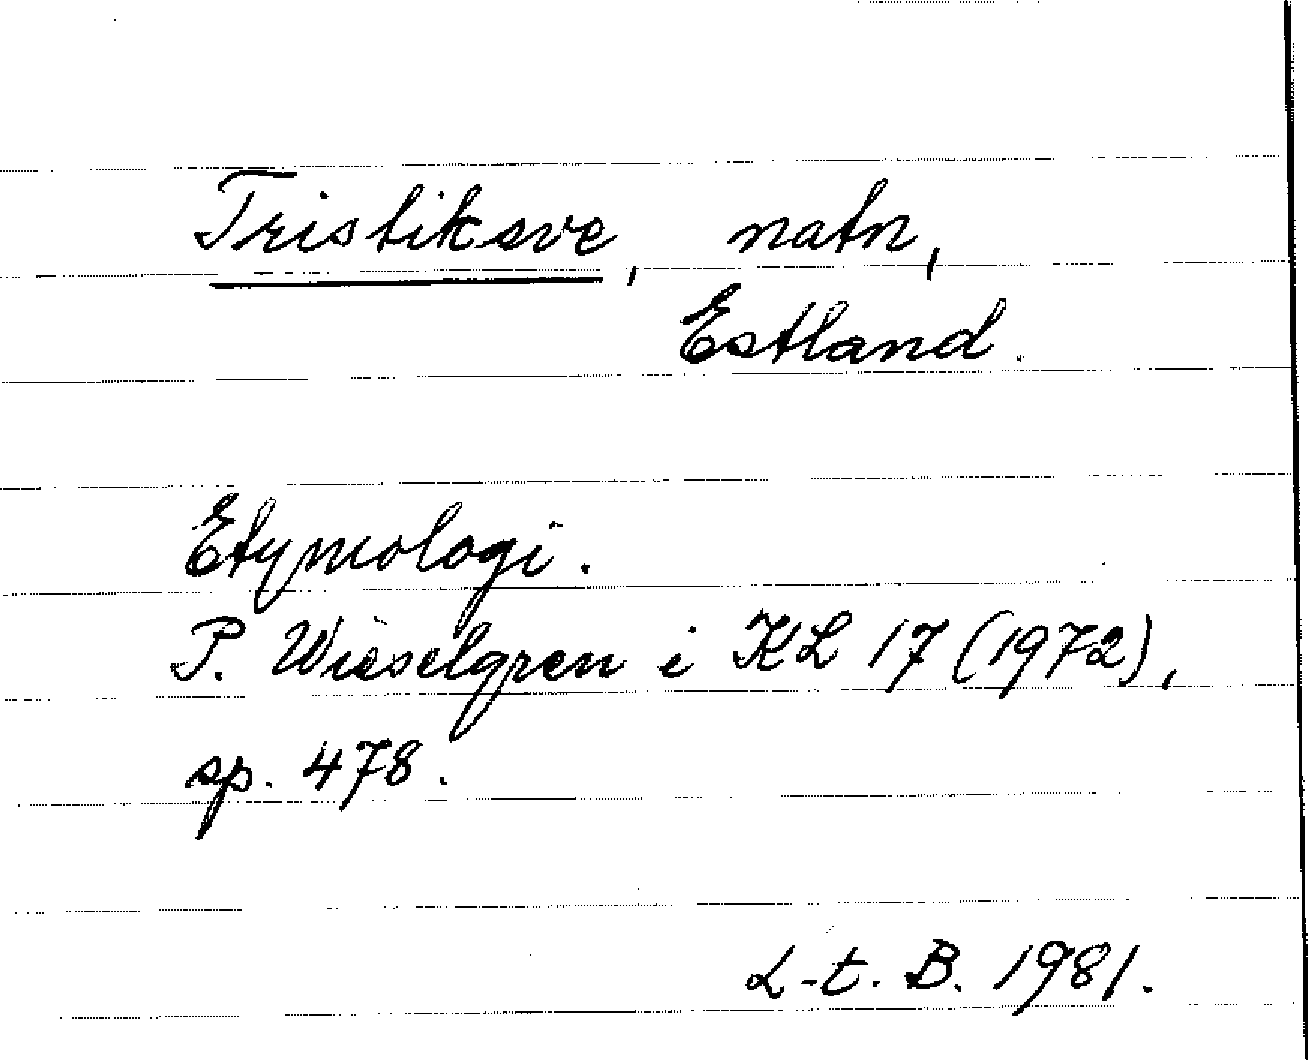 Tristiksve, natn,
Estland.
Etymologi.
P. Wieselgren i KL 17 (1972),
sp. 478.
L-t. B. 1981.